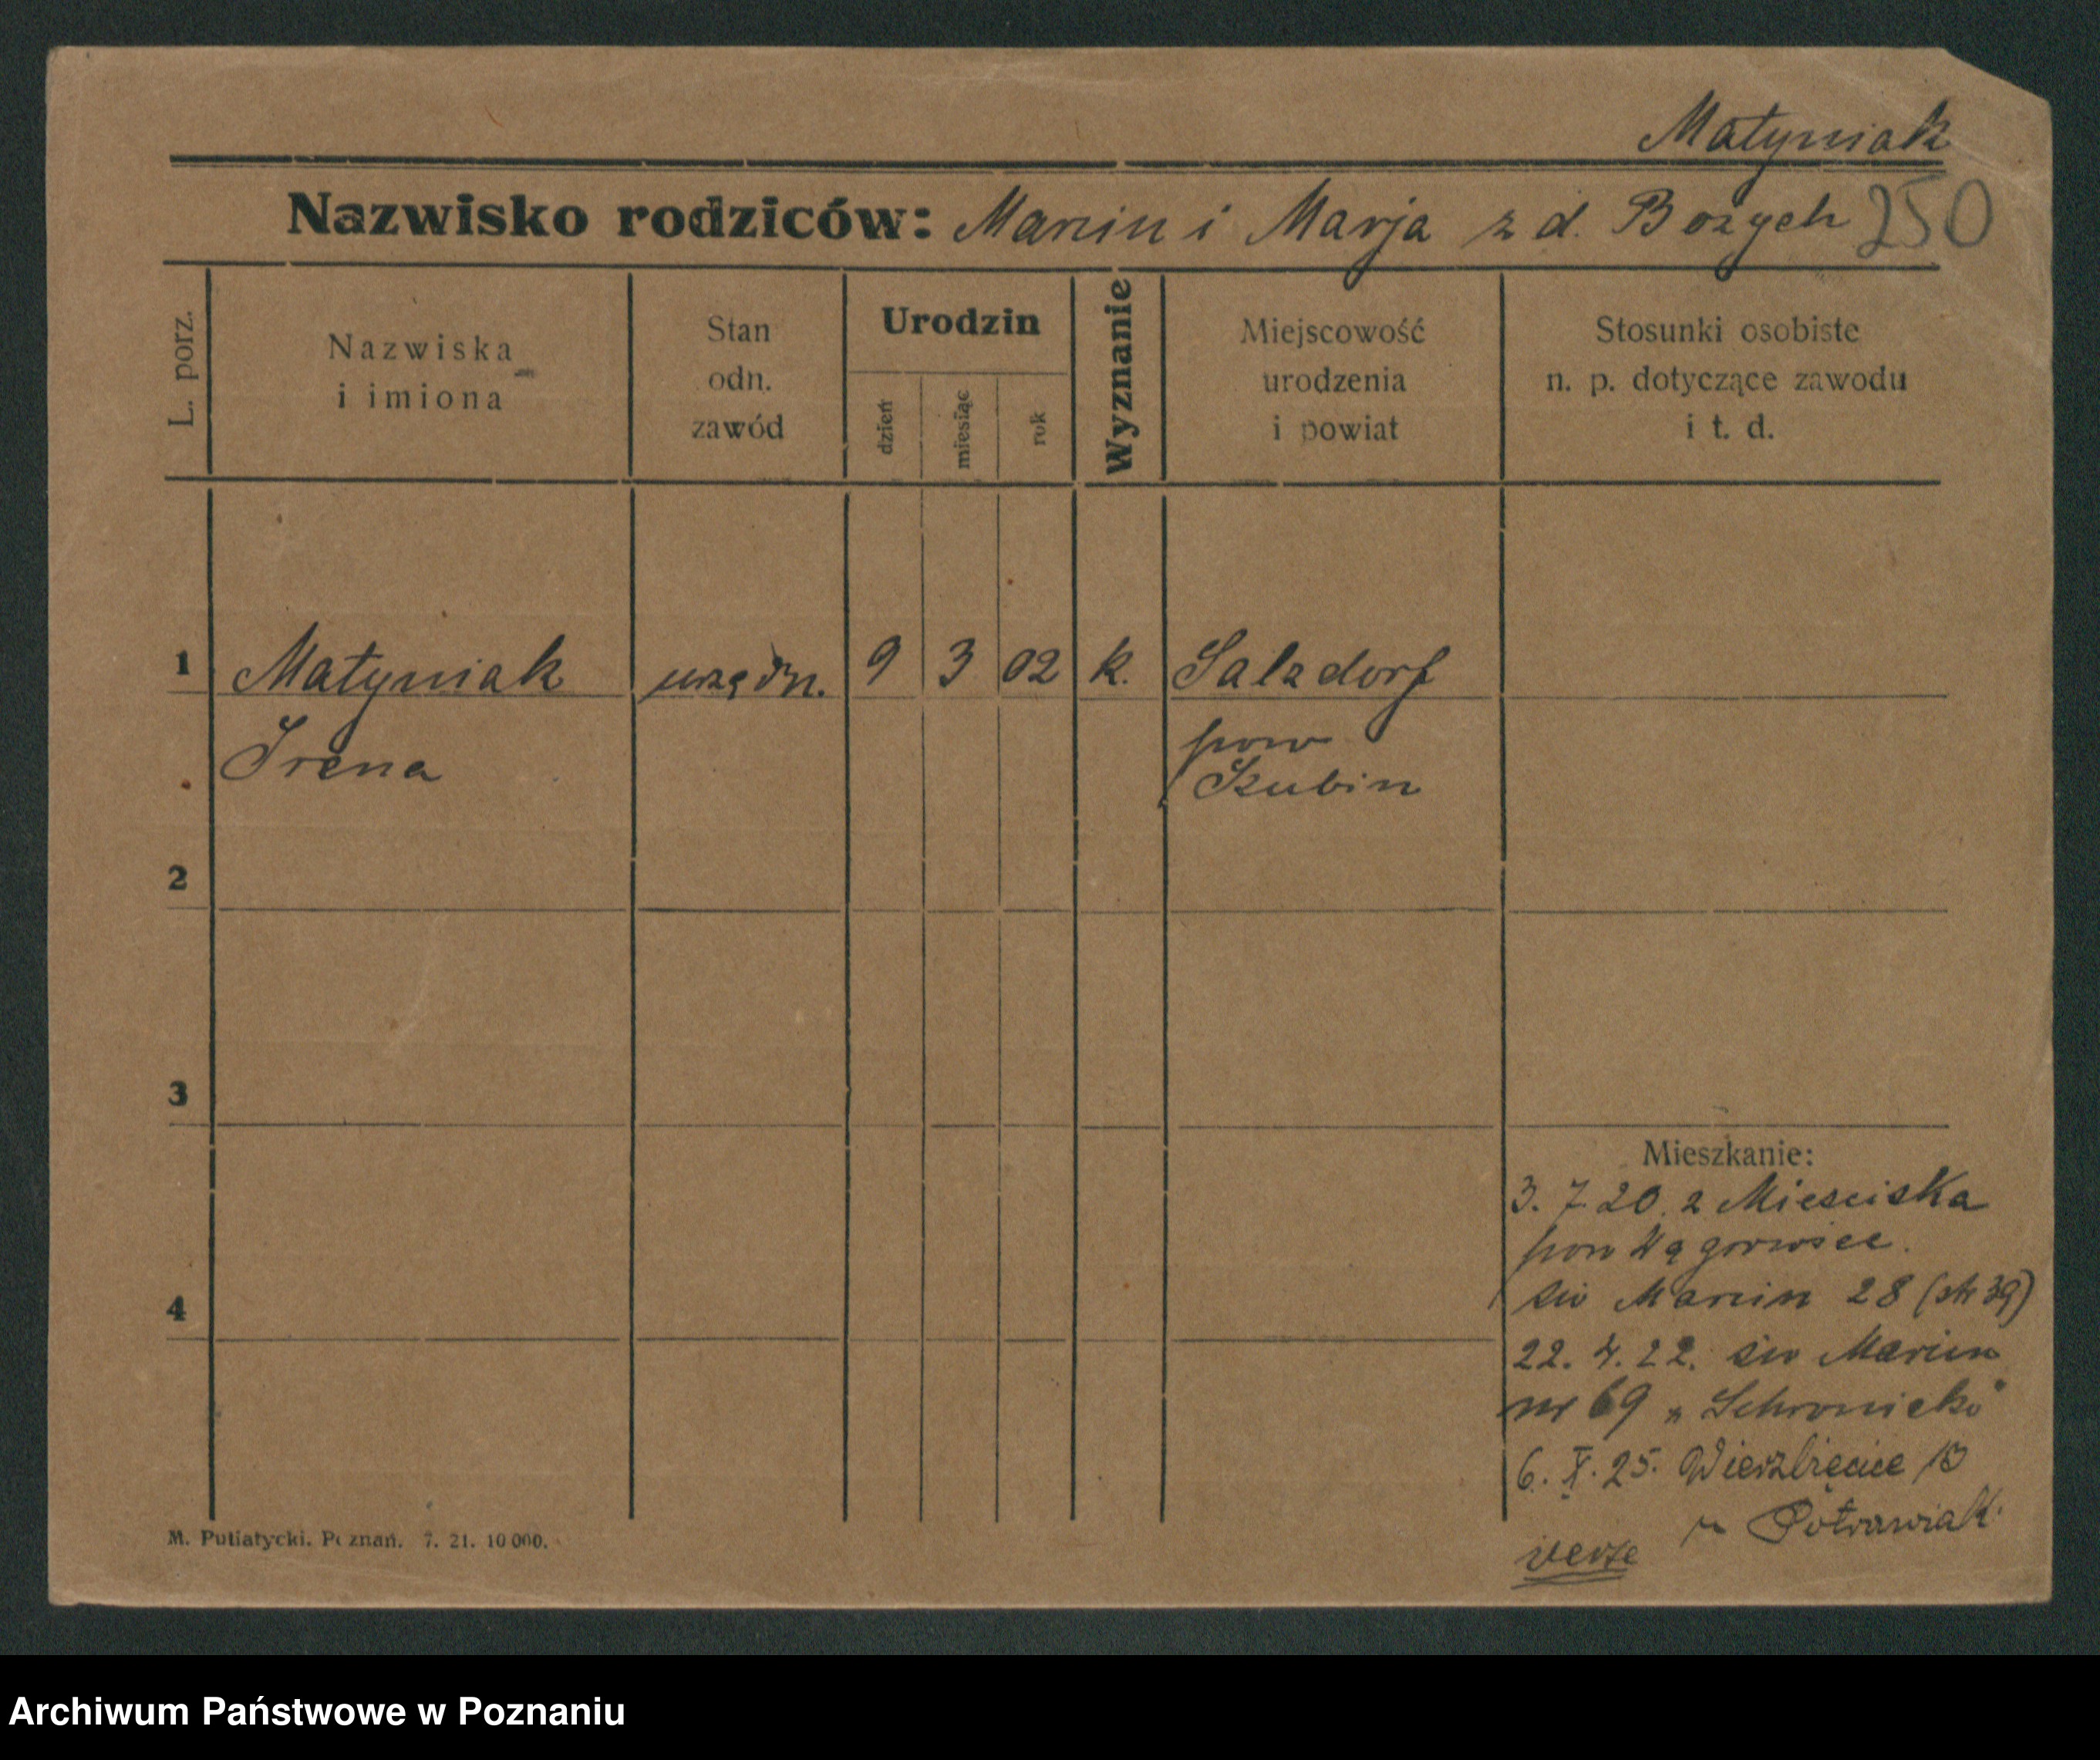 Matyniak
Nazwisko rodziców: Marcin i Marja z d. Bożych 250
L. porz.
Nazwiska
i imiona
Stan
odn.
zawód
Urodzin
dzień
miesiąc
rok
Wyznanie
Miejscowość
urodzenia
i powiat
Stosunki osobiste
n. p. dotyczące zawodu
i t. d.
1 Matyniak urzędn. 9 3 02 k. Salzdorf
Irena pow
Szubin
2
3
Mieszkanie:
3. 7. 20. z Miesciska
pow Wągrowiec.
4
św Marcin 28 (str 39)
22. 4. 22. św Marcin
nr 69 „Schronisko"
6. X. 25. Wierzbięcice 13
u Potrawiak.
verte
M. Putiatycki. Poznań. 7. 21. 10 000.
Archiwum Państwowe w Poznaniu